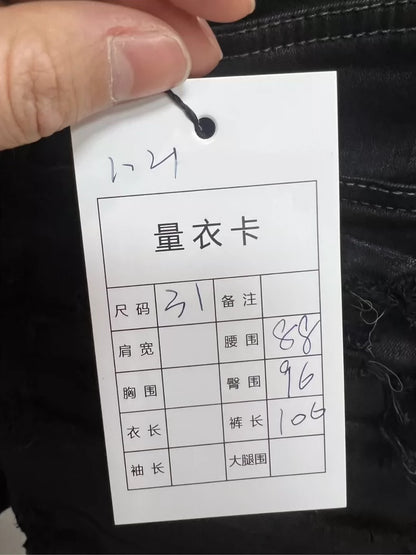 量衣卡
尺码 31 备注
肩宽 腰围 88
胸围 臀围 96
衣长 裤长 106
袖长 大腿围